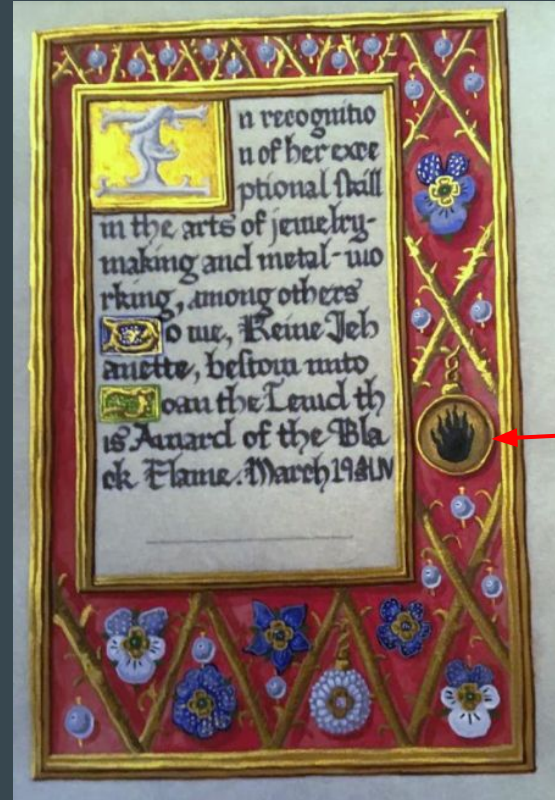 In recognitio
n of her exce
ptional skill
in the arts of jewelry-
making and metal-wo
rking, among others
Do we, Reine Jeh
anette, bestow unto
Joan the Lewd th
is Award of the Bla
ck Flame. March 19